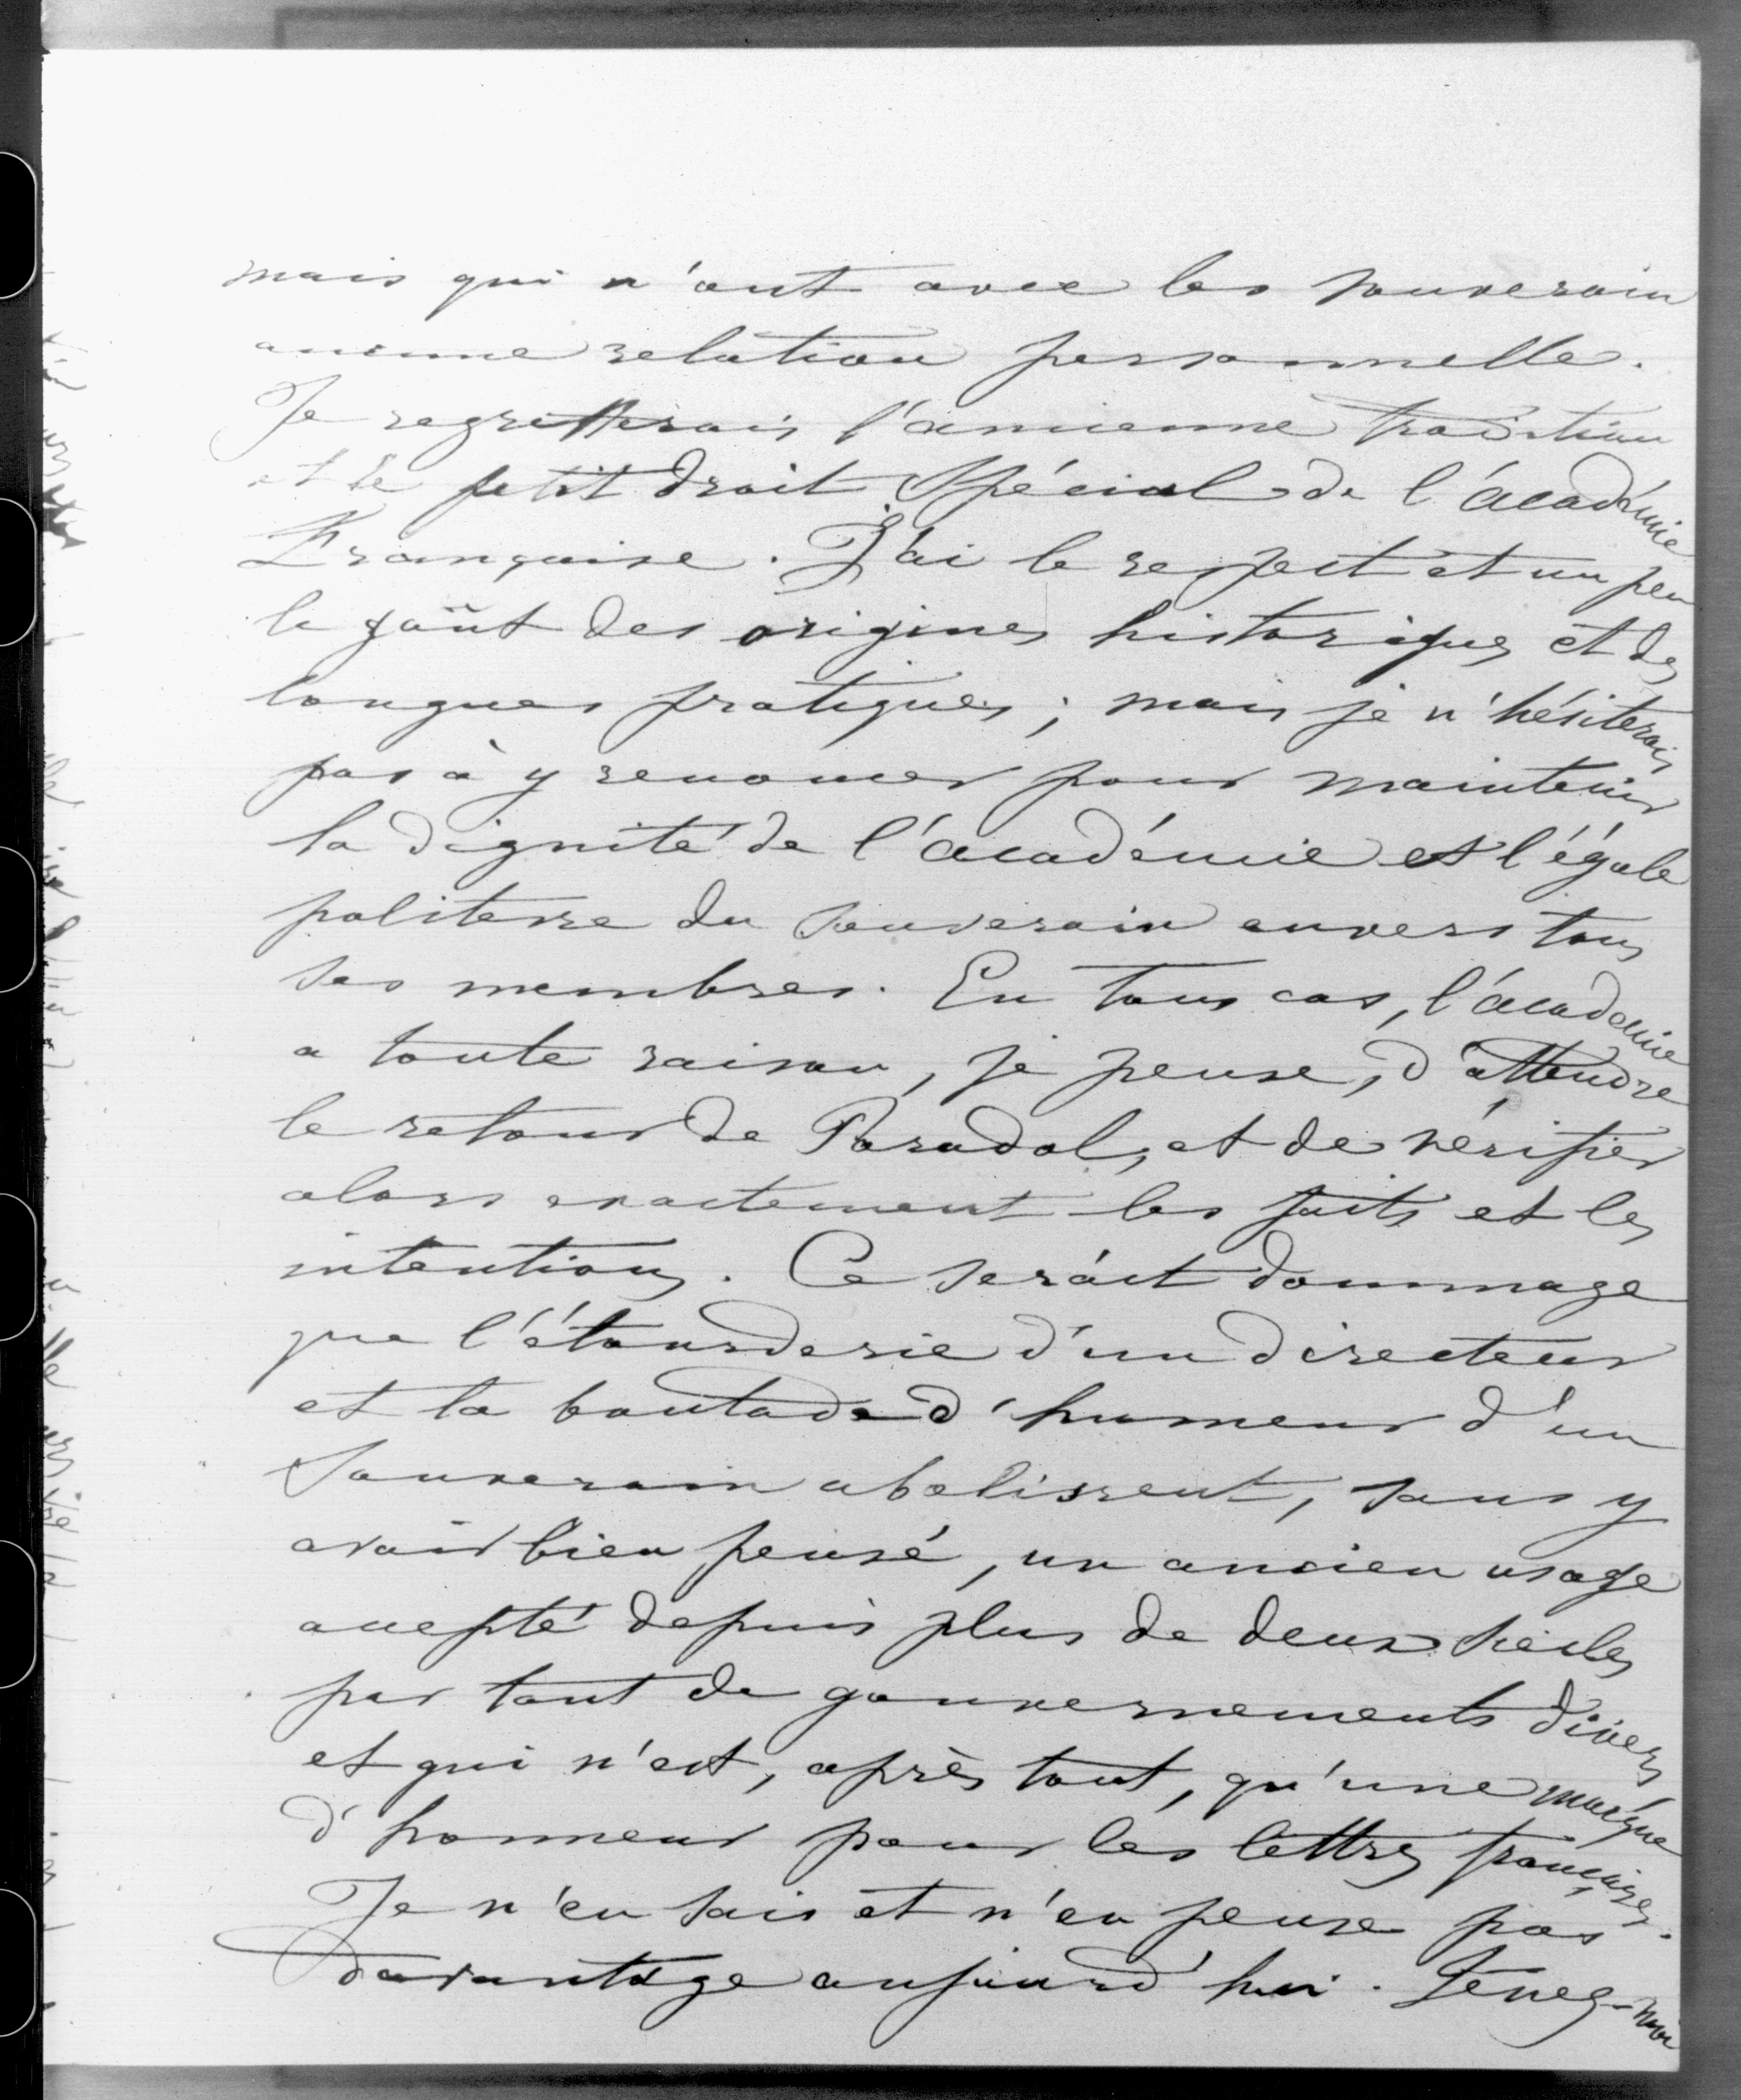 mais qui n'ont avec les souverain
aucune relation personnelle.
Je regretterais l'ancienne tradition
et le petit droit spécial de l'académie
Française. J'ai le respect et un peu
le goût des origines historiques et des
longues pratiques; mais je n'hésiterais
pas à y renoncer pour maintenir
la dignité de l'académie et l'égale
politesse du souverain envers tous
ses membres. En tous cas, l'académie
a toute raison, je pense, d'attendre
le retour de Paradol, et de vérifier
alors exactement les faits et les
intentions. Ce serait dommage
que l'étourderie d'un directeur
et la boutade d'humeur d'un
souverain abolissent, sans y
avoir bien pensé, un ancien usage
accepté depuis plus de deux siècles
par tant de gouvernements divers
et qui n'est, après tout, qu'une marque
d'honneur pour les lettres françaises.
Je n'en sais et n'en pense pas
davantage aujourd'hui. Tenez-moi